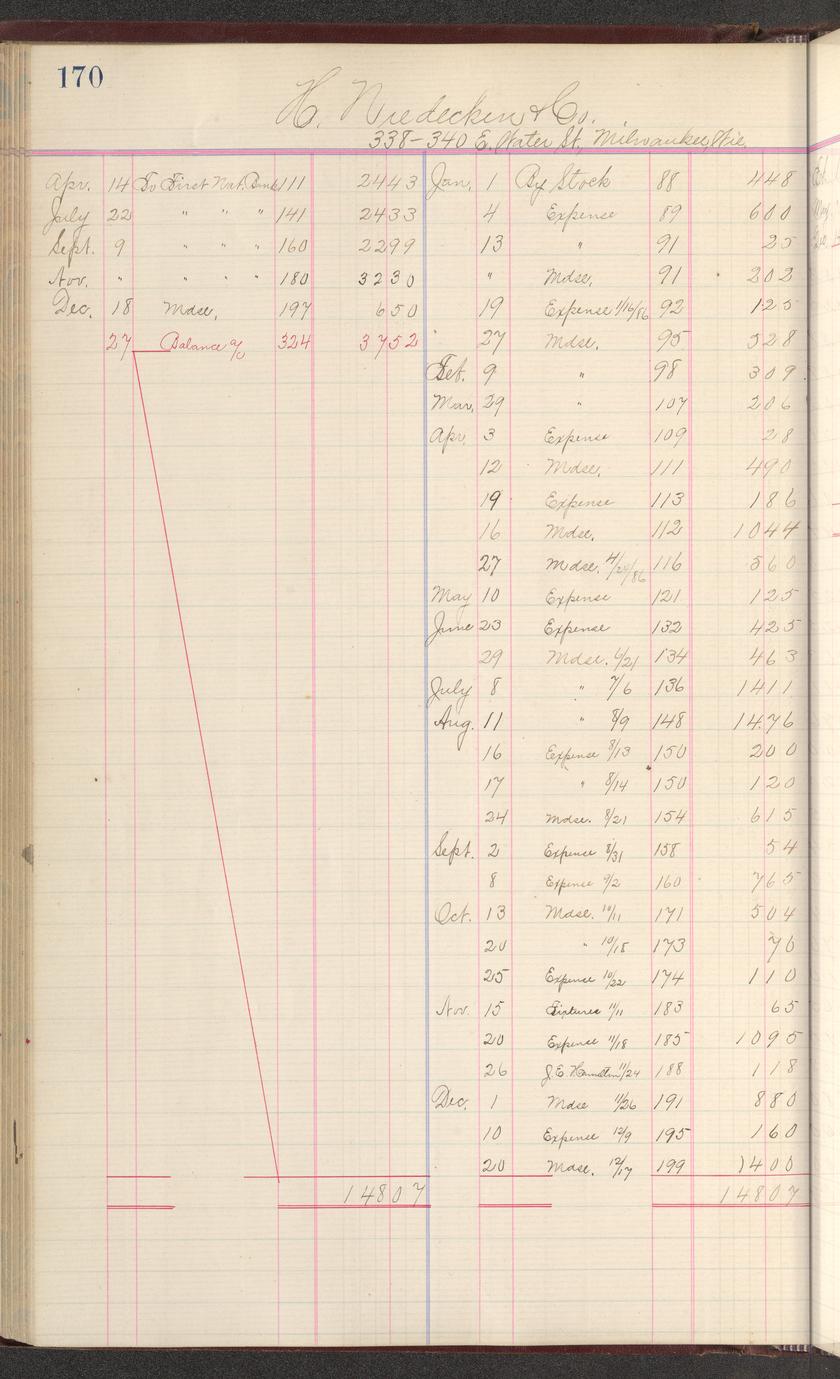 170
H. Niedecken & Co.
338-340 E. Water St., Milwaukee, Wis.
Apr. 14 To First Nat. Bank 111 2443
July 22 " " " 141 2433
Sept. 9 " " " 160 2299
Nov. " " " " 180 3230
Dec. 18 Mdse, 197 650
27 Balance a/c 324 3752
14807
Jan, 1 By Stock 88 448
4 Expense 89 600
13 " 91 25
" Mdse, 91 202
19 Expense 1/16/86 92 125
27 Mdse, 95 528
Feb. 9 " 98 309
Mar, 29 " 107 206
Apr. 3 Expense 109 28
12 Mdse, 111 490
19 Expense 113 186
16 Mdse, 112 1044
27 Mdse. 4/24/86 116 560
May 10 Expense 121 125
June 23 Expense 132 425
29 Mdse. 6/21 134 463
July 8 " 7/6 136 1411
Aug. 11 " 8/9 148 1476
16 Expense 8/13 150 200
17 " 8/14 150 120
24 Mdse. 8/21 154 615
Sept. 2 Expense 8/31 158 54
8 Expense 9/2 160 765
Oct. 13 Mdse. 10/11 171 504
20 " 10/18 173 70
25 Expense 10/22 174 110
Nov. 15 Fixtures 11/11 183 65
20 Expense 11/18 185 1095
26 J.E. 11/24 188 118
Dec. 1 Mdse 11/26 191 880
10 Expense 12/9 195 160
20 Mdse. 12/17 199 1400
14807